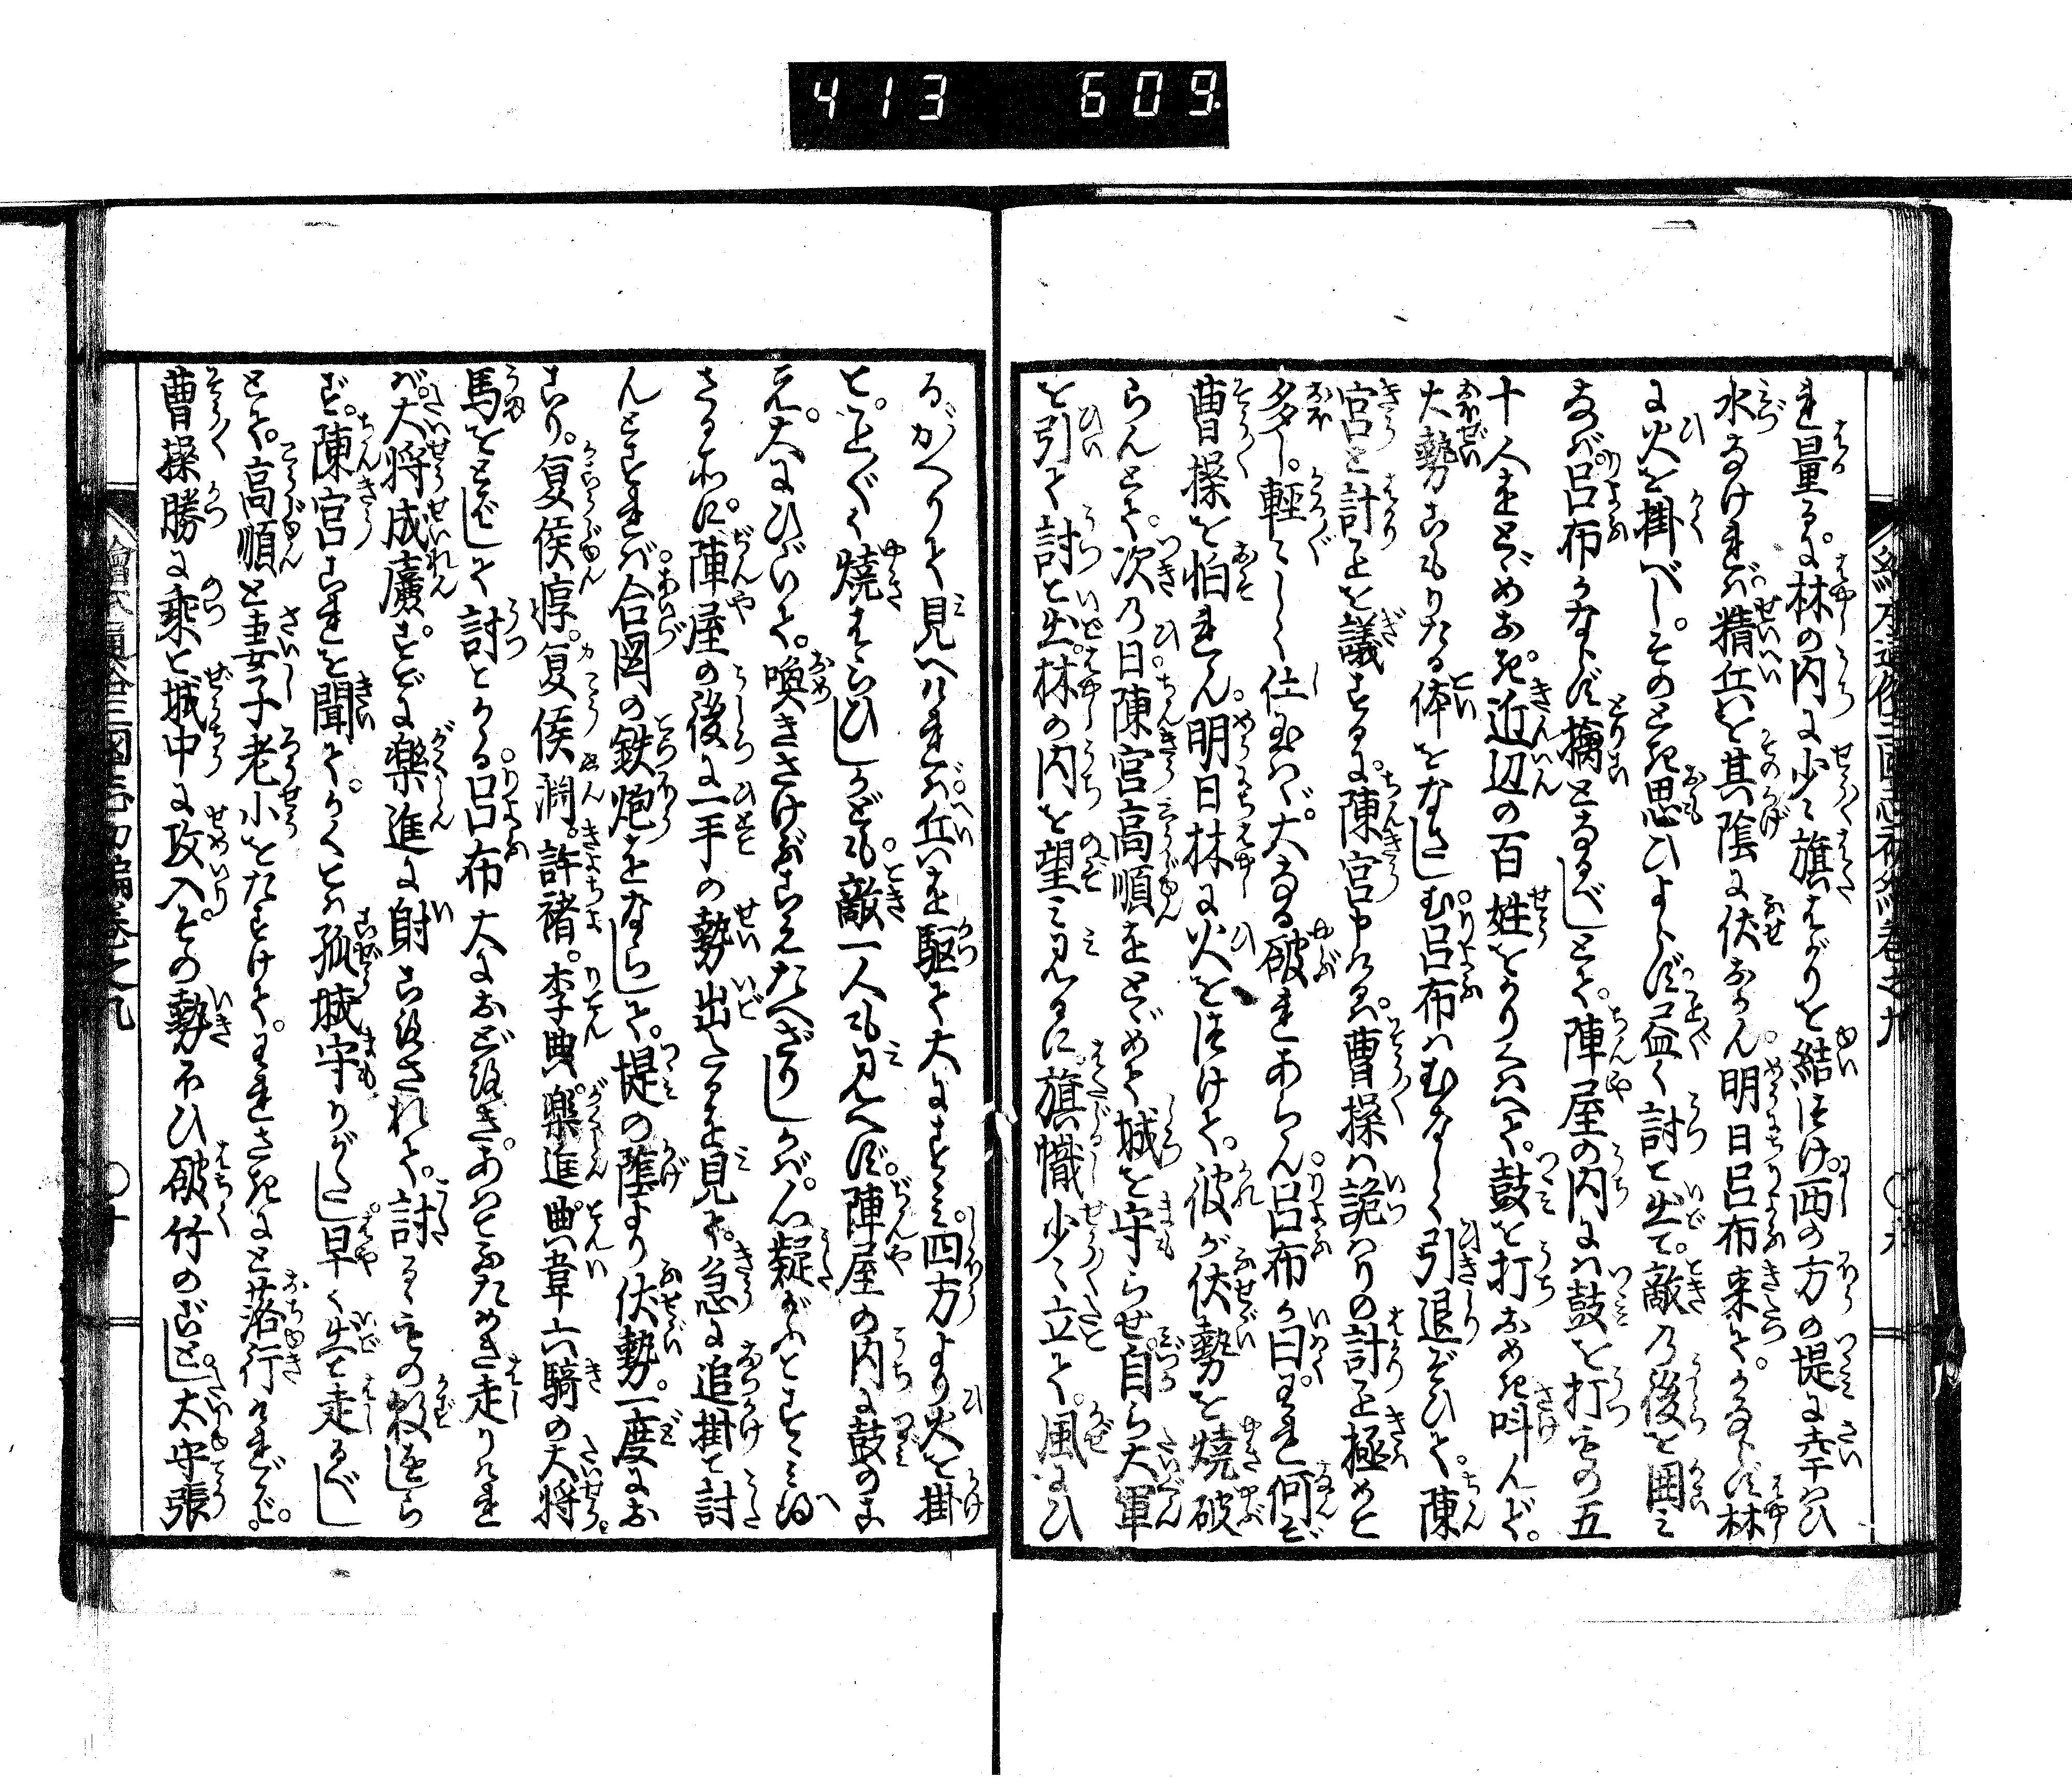 413 609
れ量るに。林の内に少々旗ばかりを結つけ。西の方の堤に幸ひ
水なけれバ。精兵を其陰に伏おかん。明日呂布来て。かならず林
に火を掛べし。そのとき思ひよらず。益〻討と出て。敵の後を囲ミ
なバ。呂布かならず擒となるべしとて。陣屋の内にハ鼓を打もの五
十人をとゞめおき。近辺の百姓をかりくハへて。鼓を打おめき叫んで。
大勢こもりたる体をなさしむ。呂布ハむなしく引退ぞひて。陳
宮と計ことを議するに。陳宮申けるハ。曹操ハ詭ハりの計こと極めて
多し。軽〻しく仕玉ハゞ。大なる破れあらん。呂布が曰。われ何ぞ
曹操を怕れん。明日林に火をつけて。彼が伏勢を焼破
らんとて。次の日。陳宮高順をとゞめて。城を守らせ。自ら大軍
を引て討と出。林の内を望ミ見るに。旗幟少〻立て。風にひ
るがへりて見へければ。兵を駆て大にすゝミ。四方より火を掛
て。上ぐく焼はらひしかども。敵一人も見へず。陣屋の内に鼓のこ
え。大にひゞいて。喚きさけぶこえたへざりしかバ。心疑がふてすゝミ得
ざる所に。陣屋の後に一手の勢出たるを見て。急に追掛て討
んとすれバ。合図の鉄炮をならして。堤の陰より伏勢。一度にお
こり。夏侯惇。夏侯淵。許褚。李典。楽進。典韋六騎の大将。
馬をとばして討とかる。呂布大におどろき。あハてふためき走りけれ
バ。大将成廉。すでに楽進に射ころされて。討るゝもの数をしら
ず。陳宮これを聞て。かくてハ孤城守りがたし。早く出て走るべし
とて。高順と妻子老小をたすけて。われさきにと落行ければ。
曹操勝に乗て城中に攻入。その勢ひ破竹のごとし。太守張